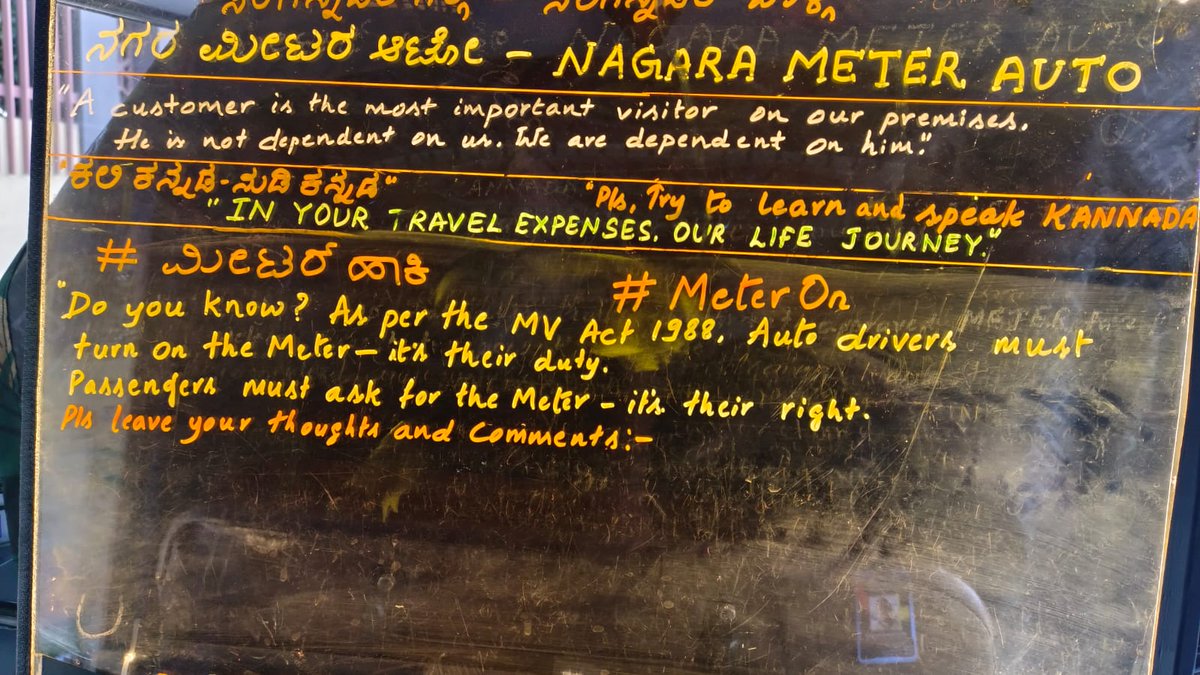 ನಗರ ಮೀಟರ್ ಆಟೋ - NAGARA METER AUTO
"A customer is the most important visitor on our premises.
He is not dependent on us. We are dependent on him."
"ಕಲಿ ಕನ್ನಡ-ನುಡಿ ಕನ್ನಡ" "Pls, Try to learn and speak KANNADA
"IN YOUR TRAVEL EXPENSES. OUR LIFE JOURNEY."
# ಮೀಟರ್ ಹಾಕಿ # Meter On
"Do you know? As per the MV Act 1988. Auto drivers must
turn on the Meter - it's their duty.
Passengers must ask for the Meter - it's their right.
Pls leave your thoughts and Comments:-